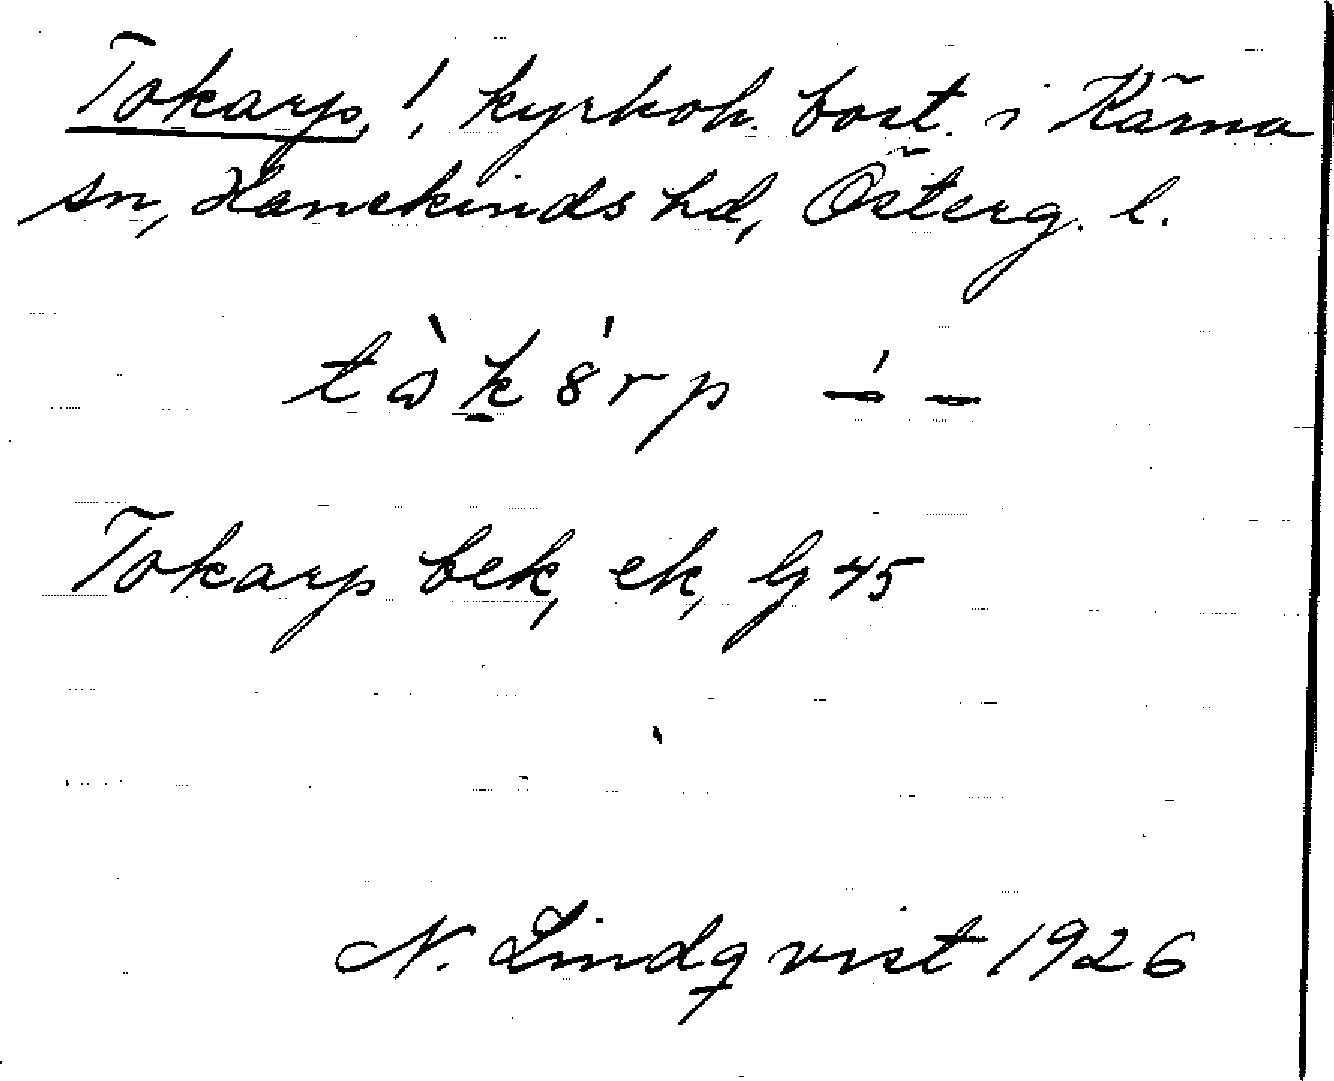 Tokarp, !, kyrkoh. bost. i Kärna
sn, Hanekinds hd, Österg. l.
tὼk8́rp –́ –
Tokarp bek, ek, G 45
N. Lindqvist 1926